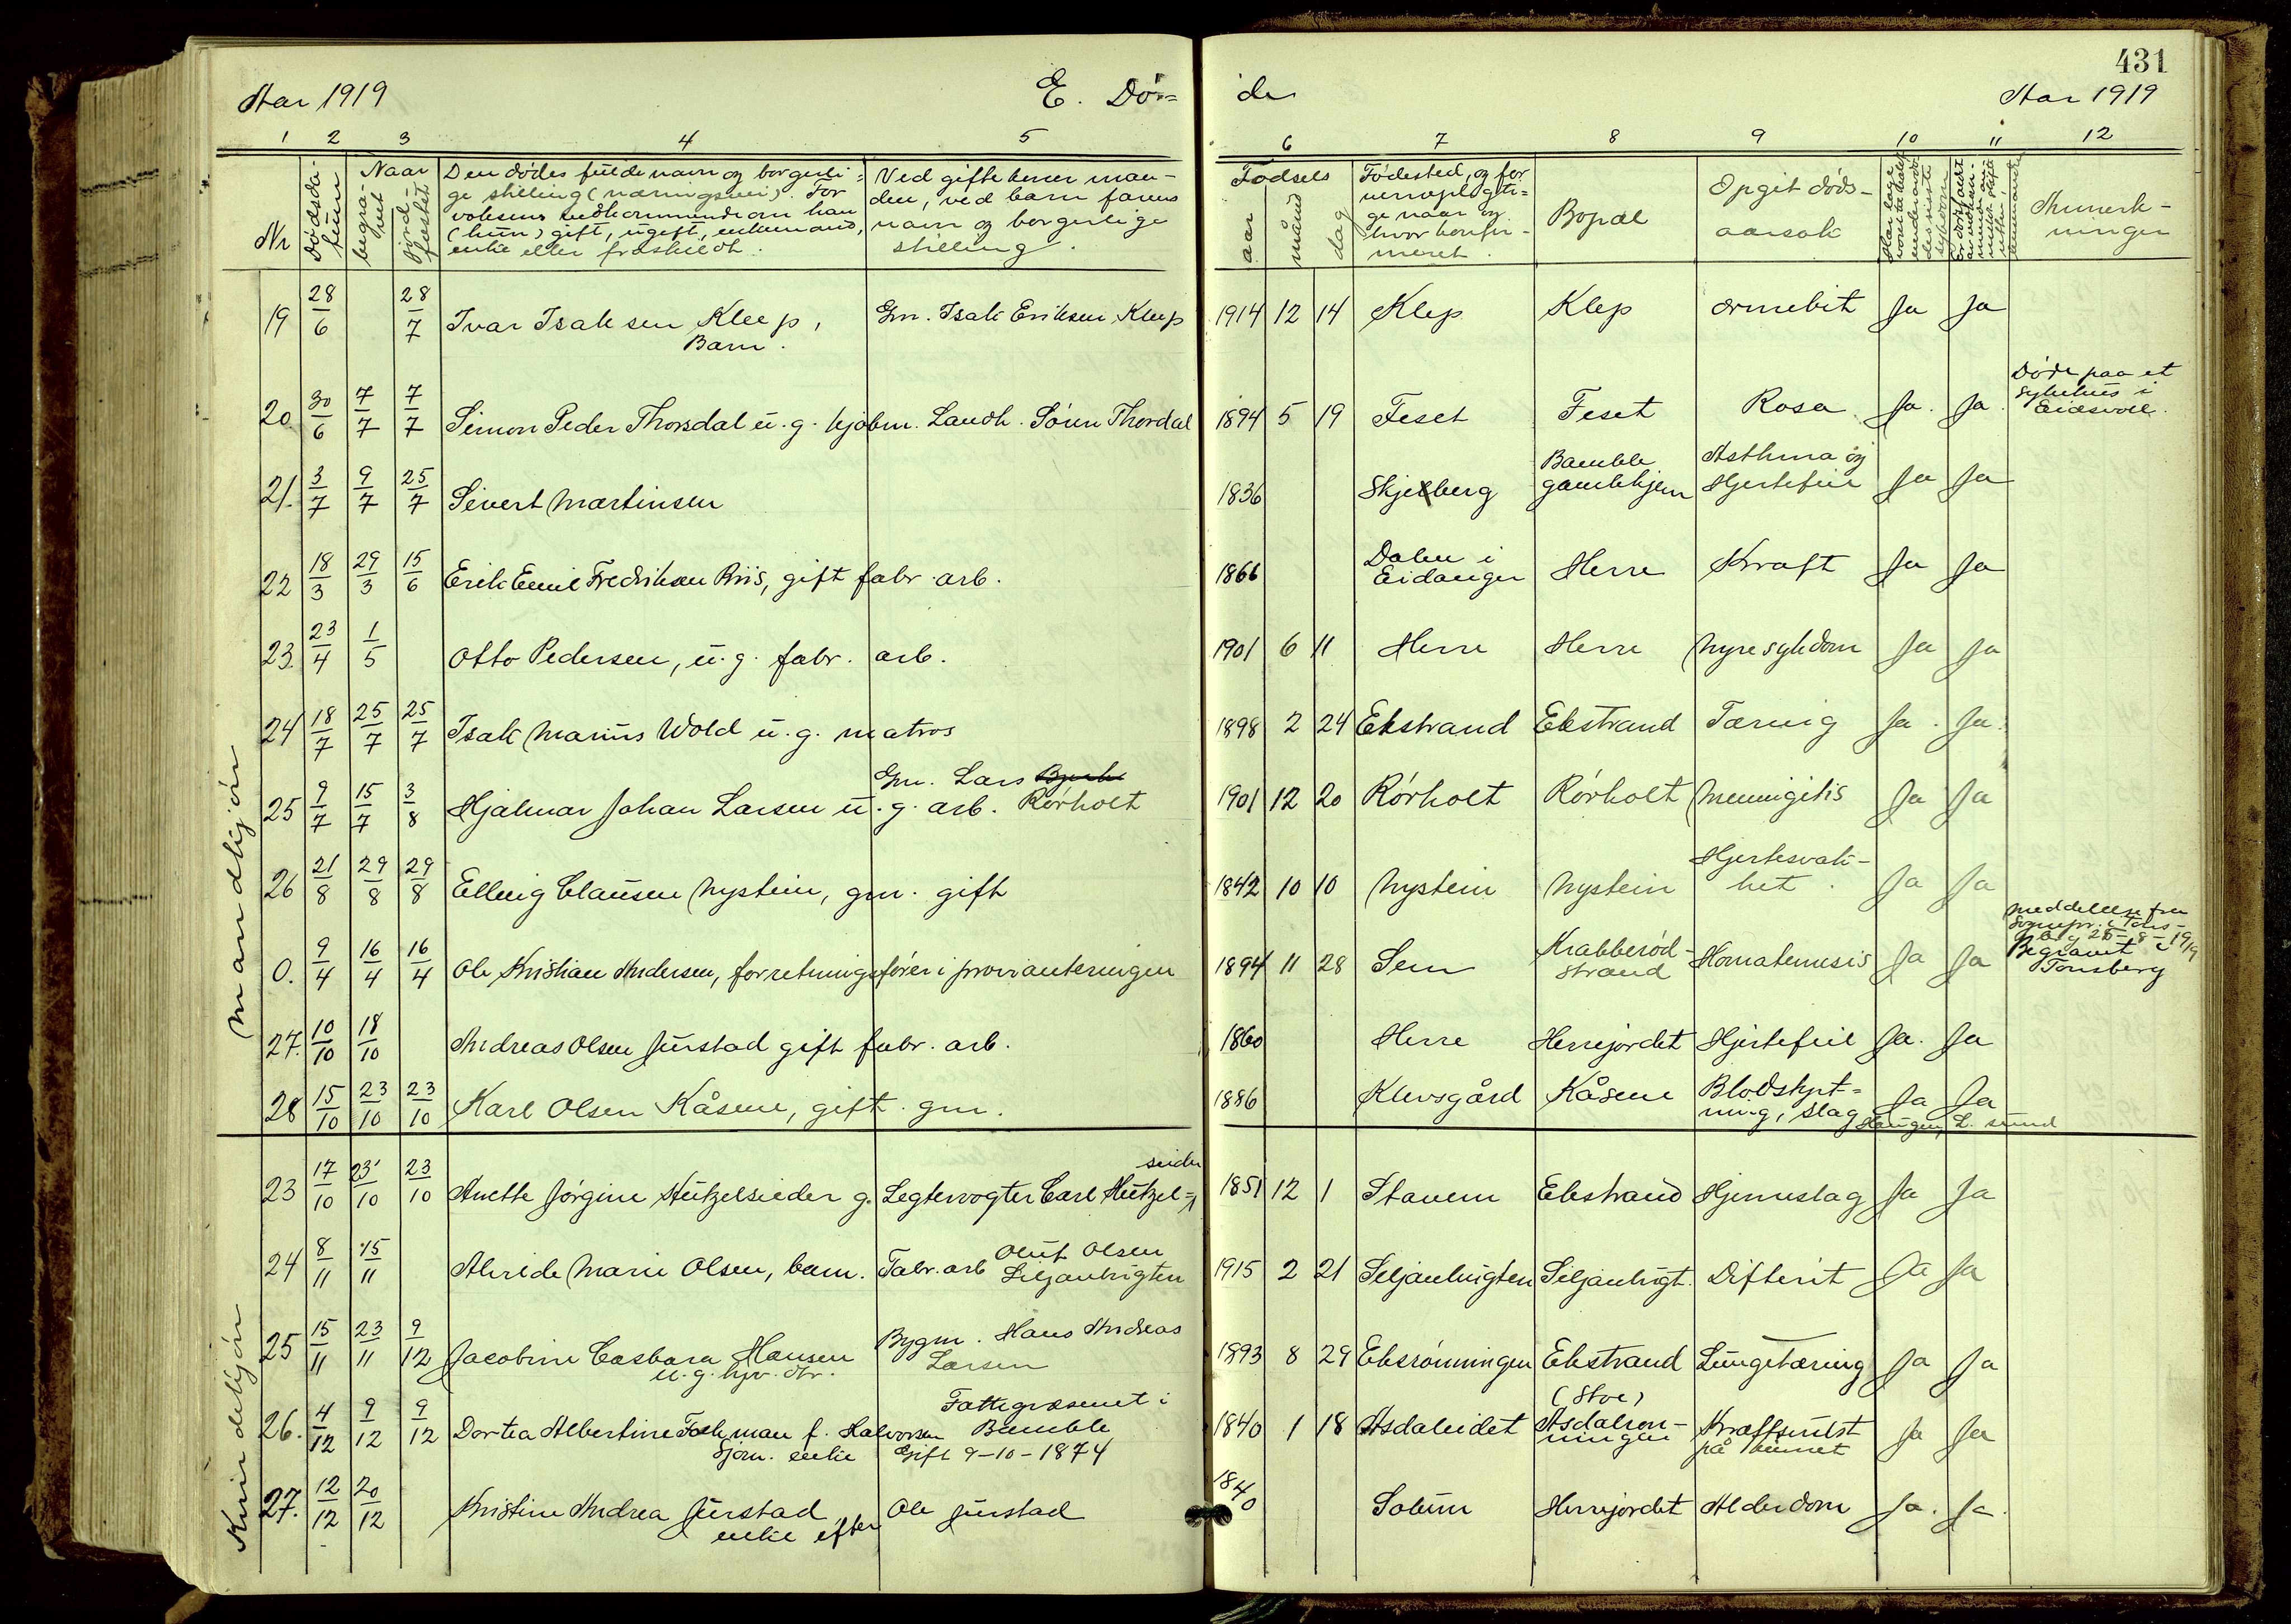 431
Aar 1919
E. Dø=
de
Aar 1919
1 2 3 4 5
6 7 8 9 10 11 12
Nr
Dødsda-
tum
Naar
begra-
vet
jord-
fæstet
Den dødes fulde navn og borgerli=
ge stilling (næringsvei). For
voksens vedkommende om han
(hun) gift, ugift, enkemand,
enke eller fraskildt.
Ved gifte koner man-
den, ved barn farens
navn og borgerlige
stilling.
Fødsels
aar
måned
dag
Fødested, og for
verneplegti=
ge naar og
hvor konfir-
meret.
Bopæl
Opgit døds-
aarsak
Anmerk-
ninger
mandkjøn
19 28/6 28/7 Ivar Isaksen Kleep, Gm. Isak Eriksen Kleep 1914 12 14 Klep Klep ormebit Ja Ja
Barn.
20 30/6 7/7 7/7 Simon Peder Thorsdal u. g. kjøbm. Landh. Søren Thordal 1894 5 19 Feset Feset Rosa Ja. Ja. Døde paa et
sykehus i
Eidsvoll.
21. 3/7 9/7 25/7 Sivert Martinsen 1836 Skjelberg Bamble
gamlehjem Asthma og
Hjertefeil Ja Ja
22 18/3 29/3 15/6 Erik Emil Fredriksen Riis, gift fabr. arb. 1866 Dalen i
Eidanger Herre Kræft Ja Ja
23. 23/4 1/5 Otto Pedersen, u. g. fabr. arb. 1901 6 11 Herre Herre Nyresykdom Ja Ja
24 18/7 25/7 25/7 Isak Marius Wold u. g. matros 1898 2 24 Ekstrand Ekstrand Tæring Ja. Ja.
25 9/7 15/7 3/8 Hjalmar Johan Larsen u. g. arb. Gm. Lars
Rørholt 1901 12 20 Rørholt Rørholt Meningitis Ja Ja
26 21/8 29/8 29/8 Elling Clausen Nystein, gm. gift 1842 10 10 Nystein Nystein Hjertesvak-
het. Ja Ja
0. 9/4 16/4 16/4 Ole Kristian Andersen, forretningsfører i provianteringen 1894 11 28 Sem Krabberød-
strand Hæmatemesis Ja Ja meddelelse fra
Begravet
Tønsberg
27. 10/10 18/10 Andreas Olsen Jurstad gift fabr. arb. 1860 Herre Herrejordet Hjertefeil Ja. Ja
28 15/10 23/10 23/10 Karl Olsen Kåsene, gift. gm. 1886 Klevsgård Kåsene Blodstyrt=
ning, slag Ja Ja
Haugen, L. sund
Kvindekjøn
23 17/10 23/10 23/10 Anette Jørgine Hutzelsieder g. Legtervogter Carl Hutzel=
sieder 1851 12 1 Stavern Ekstrand Hjerneslag Ja Ja
24 8/11 15/11 Alvilde Marie Olsen, barn. Fabr. arb Oluf Olsen
Siljanbugten 1915 2 21 Siljanbugten Siljanbugt. Difterit Ja Ja
25 15/11 23/11 9/12 Jacobine Casbara Hansen
u. g. hjv. dtr. Bygm. Hans Andreas
Larsen 1893 8 29 Ekrønningen Ekstrand Lungetæring Ja Ja
26. 4/12 9/12 9/12 Dortea Albertine Falkman f. Halvorsen
Sjøm. enke Fattigvæsenet i
Bamble
Gift 9-10-1874 1840 1 18 Asdaleidet (Stoe)
Asdalrøn-
ningen Kræftsvulst
på Ja Ja
27. 12/12 20/12 Kristine Andrea Jurstad
enke efter Ole Jurstad 1840 Solum Herrejordet Alderdom Ja. Ja.